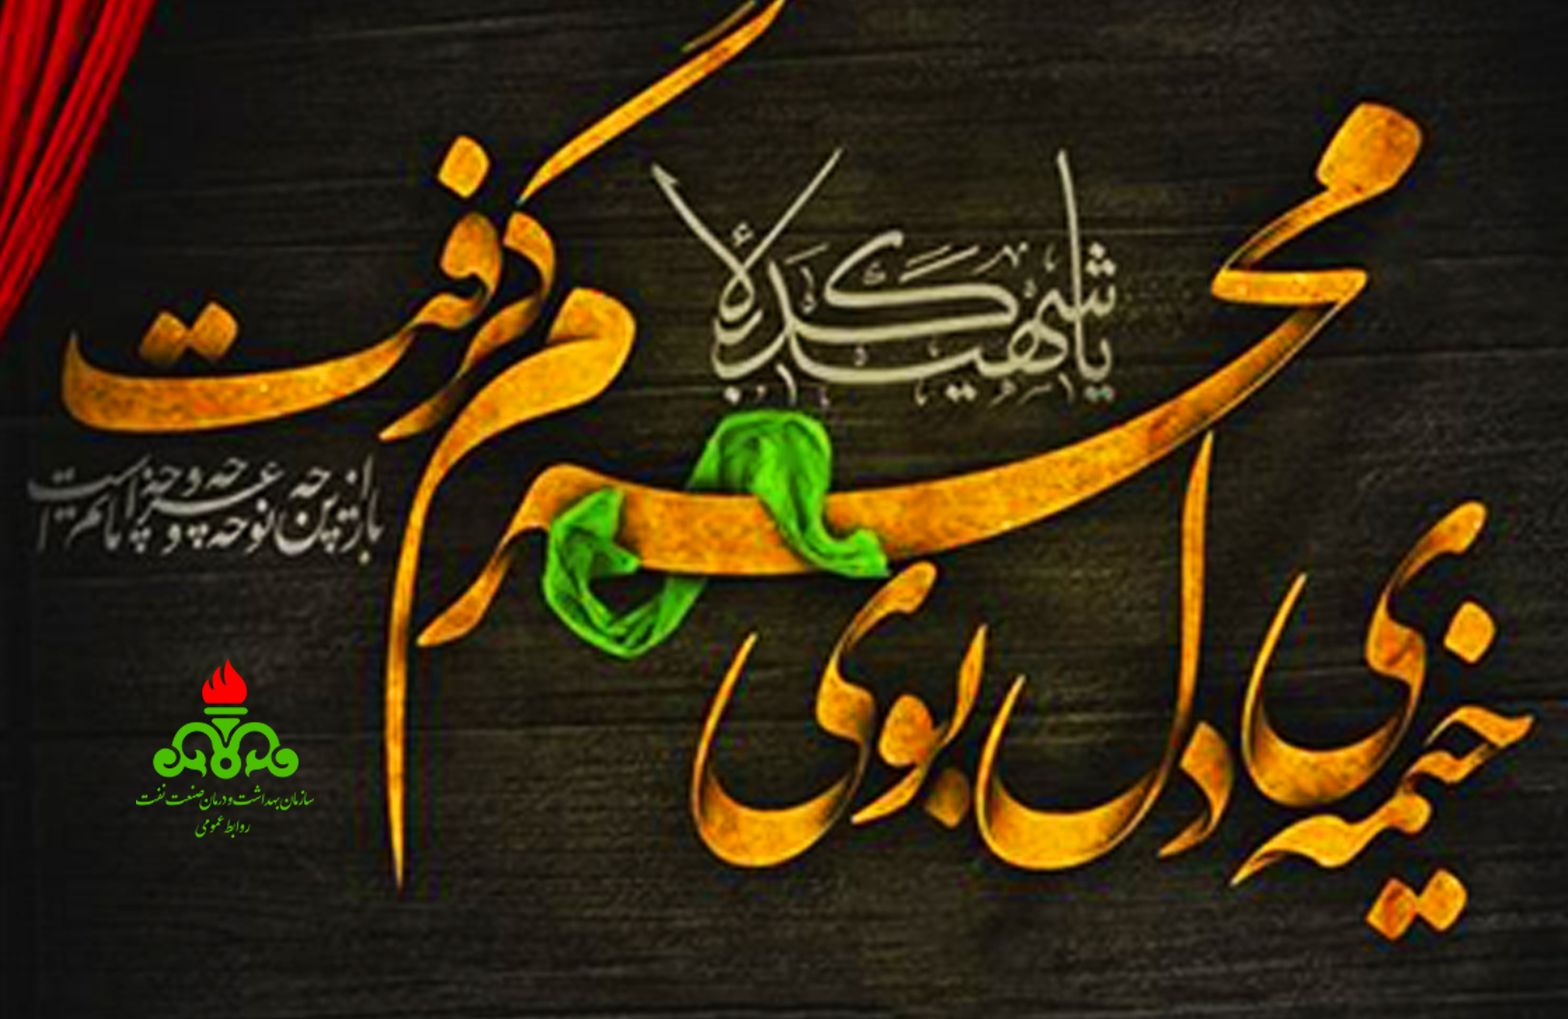 خیمه ی دل بوی
محرم گرفت
یا شهید کربلا
باز این چه نوحه و چه عزا و چه ماتم است
سازمان بهداشت و درمان صنعت نفت
روابط عمومی